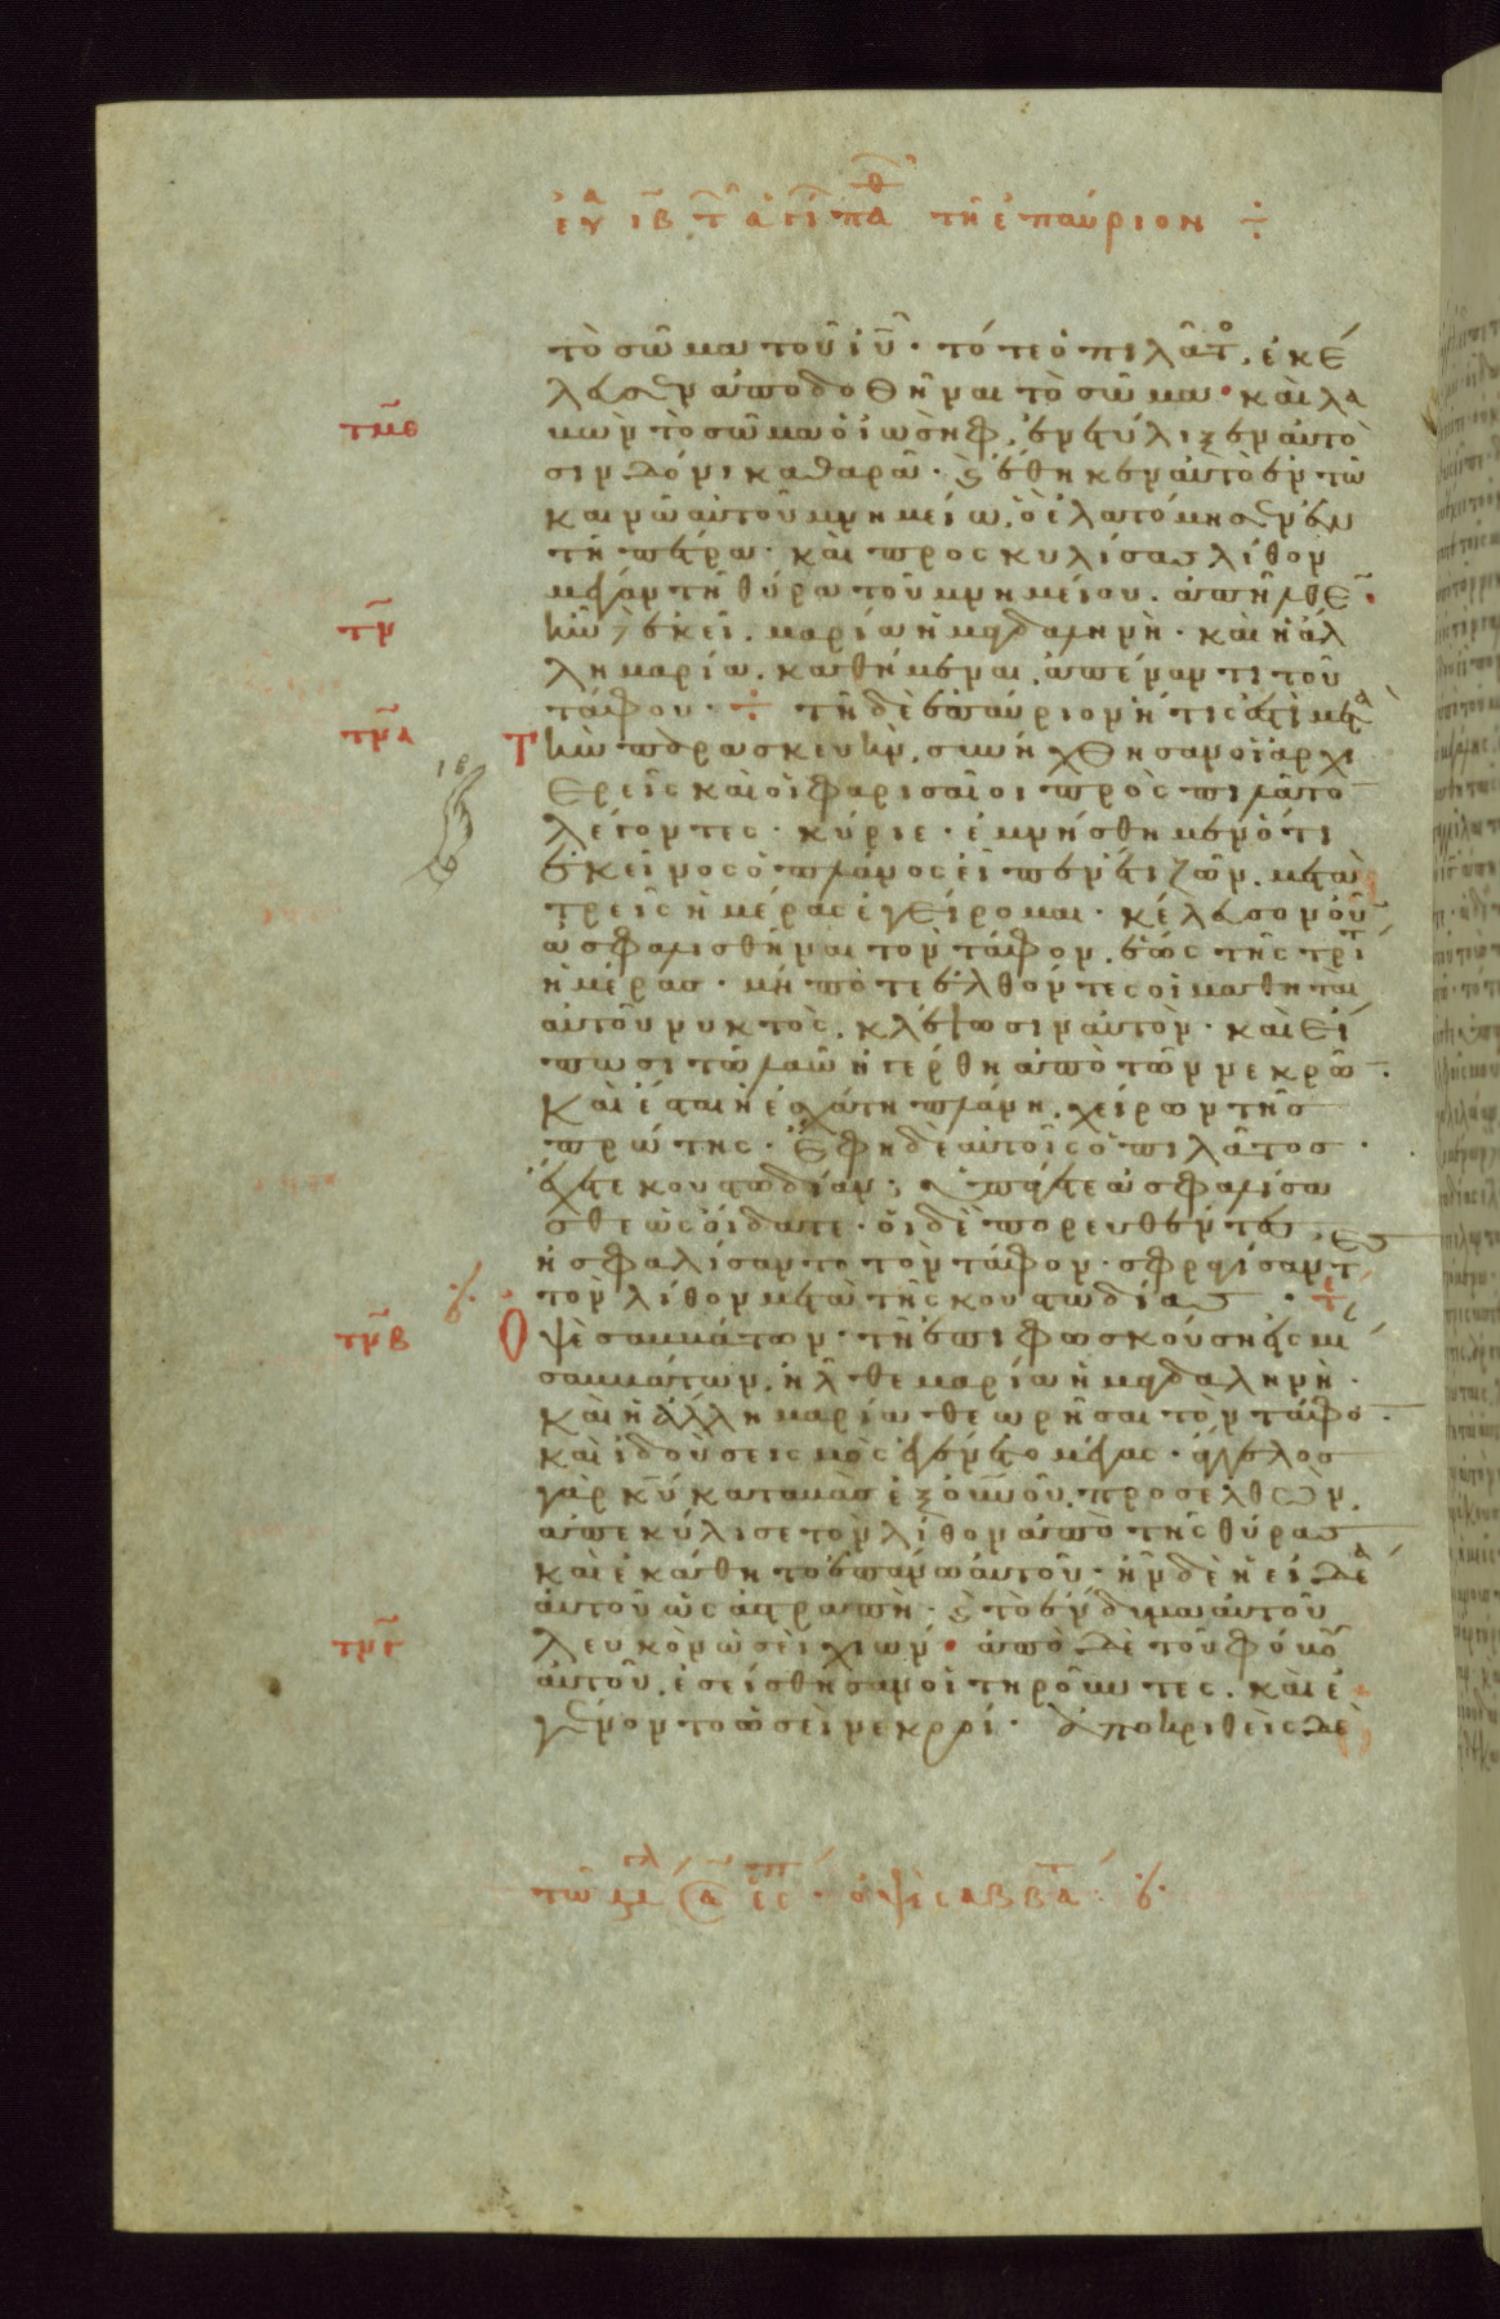 τῆ ἐπαύριον ÷
τὸ σῶμα τοῦ ἰῦ· τότε ὁ πιλᾶτ, ἐκέ
λευσεν ἀποδοθῆναι τὸ σῶμα· καὶ λα
τμθ
βὼν τὸ σῶμα ὁ ἰωσὴφ, ἐνετύλιξεν αὐτὸ
σινδόνι καθαρᾶ· καὶ ἔθηκεν αὐτὸ ἐν τῶ
καινῶ αὐτοῦ μνημείω, ὃ ἐλατόμησεν ἐν
τῆ πέτρα· καὶ προσκυλίσας λίθον
μέγαν τῆ θύρα τοῦ μνημείου. ἀπῆλθε·
τν
ἦν δὲ ἐκεῖ. μαρία ἡ μαγδαληνὴ· καὶ ἡ ἄλ
λη μαρία. καθήμεναι, ἀπέναντι τοῦ
τάφου· ÷ τῆ δὲ ἐπαύριον ἥτις ἐστὶ μετὰ
τνα
Τ ὴν παρασκευὴν, συνήχθησαν οἱ ἀρχι
ερεῖς καὶ οἱ φαρισαῖοι πρὸς πιλᾶτο
λέγοντες· κύριε· ἐμνήσθημεν ὅτι
ἐκεῖνος ὁ πλάνος εἶπεν ἔτι ζῶν. μετὰ
τρεῖς ἡμέρας ἐγείρομαι· κέλευσον οὖ
ἀσφαλισθῆναι τὸν τάφον, ἕως τῆς τρί
ἡμέρας· μήποτε ἐλθόντες οἱ μαθηταὶ
αὐτοῦ νυκτὸς, κλέψωσιν αὐτὸν· καὶ εἴ
πωσι τῶ λαῶ ἠγέρθη ἀπὸ τῶν νεκρῶ·
καὶ ἔσται ἡ ἐσχάτη πλάνη, χείρων τῆς
πρώτης· ἔφη δὲ αὐτοῖς ὁ πιλᾶτος·
ἔχετε κουστωδίαν; ὑπάγετε ἀσφαλίσα
σθε ὡς οἴδατε· οἱ δὲ πορευθέντες,
ἠσφαλίσαντο τὸν τάφον· σφραγίσαντες
τὸν λίθον μετὰ τῆς κουστωδίας·
τνβ
Ο ψὲ σαββάτων· τῆ ἐπιφωσκούση εἰς μί
σαββάτων, ἦλθε μαρία ἡ μαγδαληνὴ·
καὶ ἡ ἄλλη μαρία θεωρῆσαι τὸν τάφο·
καὶ ἰδοὺ σεισμὸς ἐγένετο μέγας· ἄγγελος
γὰρ κῦ καταβὰς ἐξ οὐνοῦ, προσελθὼν,
ἀπεκύλισε τὸν λίθον ἀπὸ τῆς θύρας
καὶ ἐκάθητο ἐπάνω αὐτοῦ· ἦν δὲ ἡ εἰδέα
αὐτοῦ ὡς ἀστραπὴ· καὶ τὸ ἔνδυμα αὐτοῦ
τνγ
λευκὸν ὡσεὶ χιών· ἀπὸ δὲ τοῦ φόβου
αὐτοῦ, ἐσείσθησαν οἱ τηροῦντες· καὶ ἐ
γένοντο ὡσεὶ νεκροί· ἀποκριθεὶς δὲ
ὀψὲ σαββά